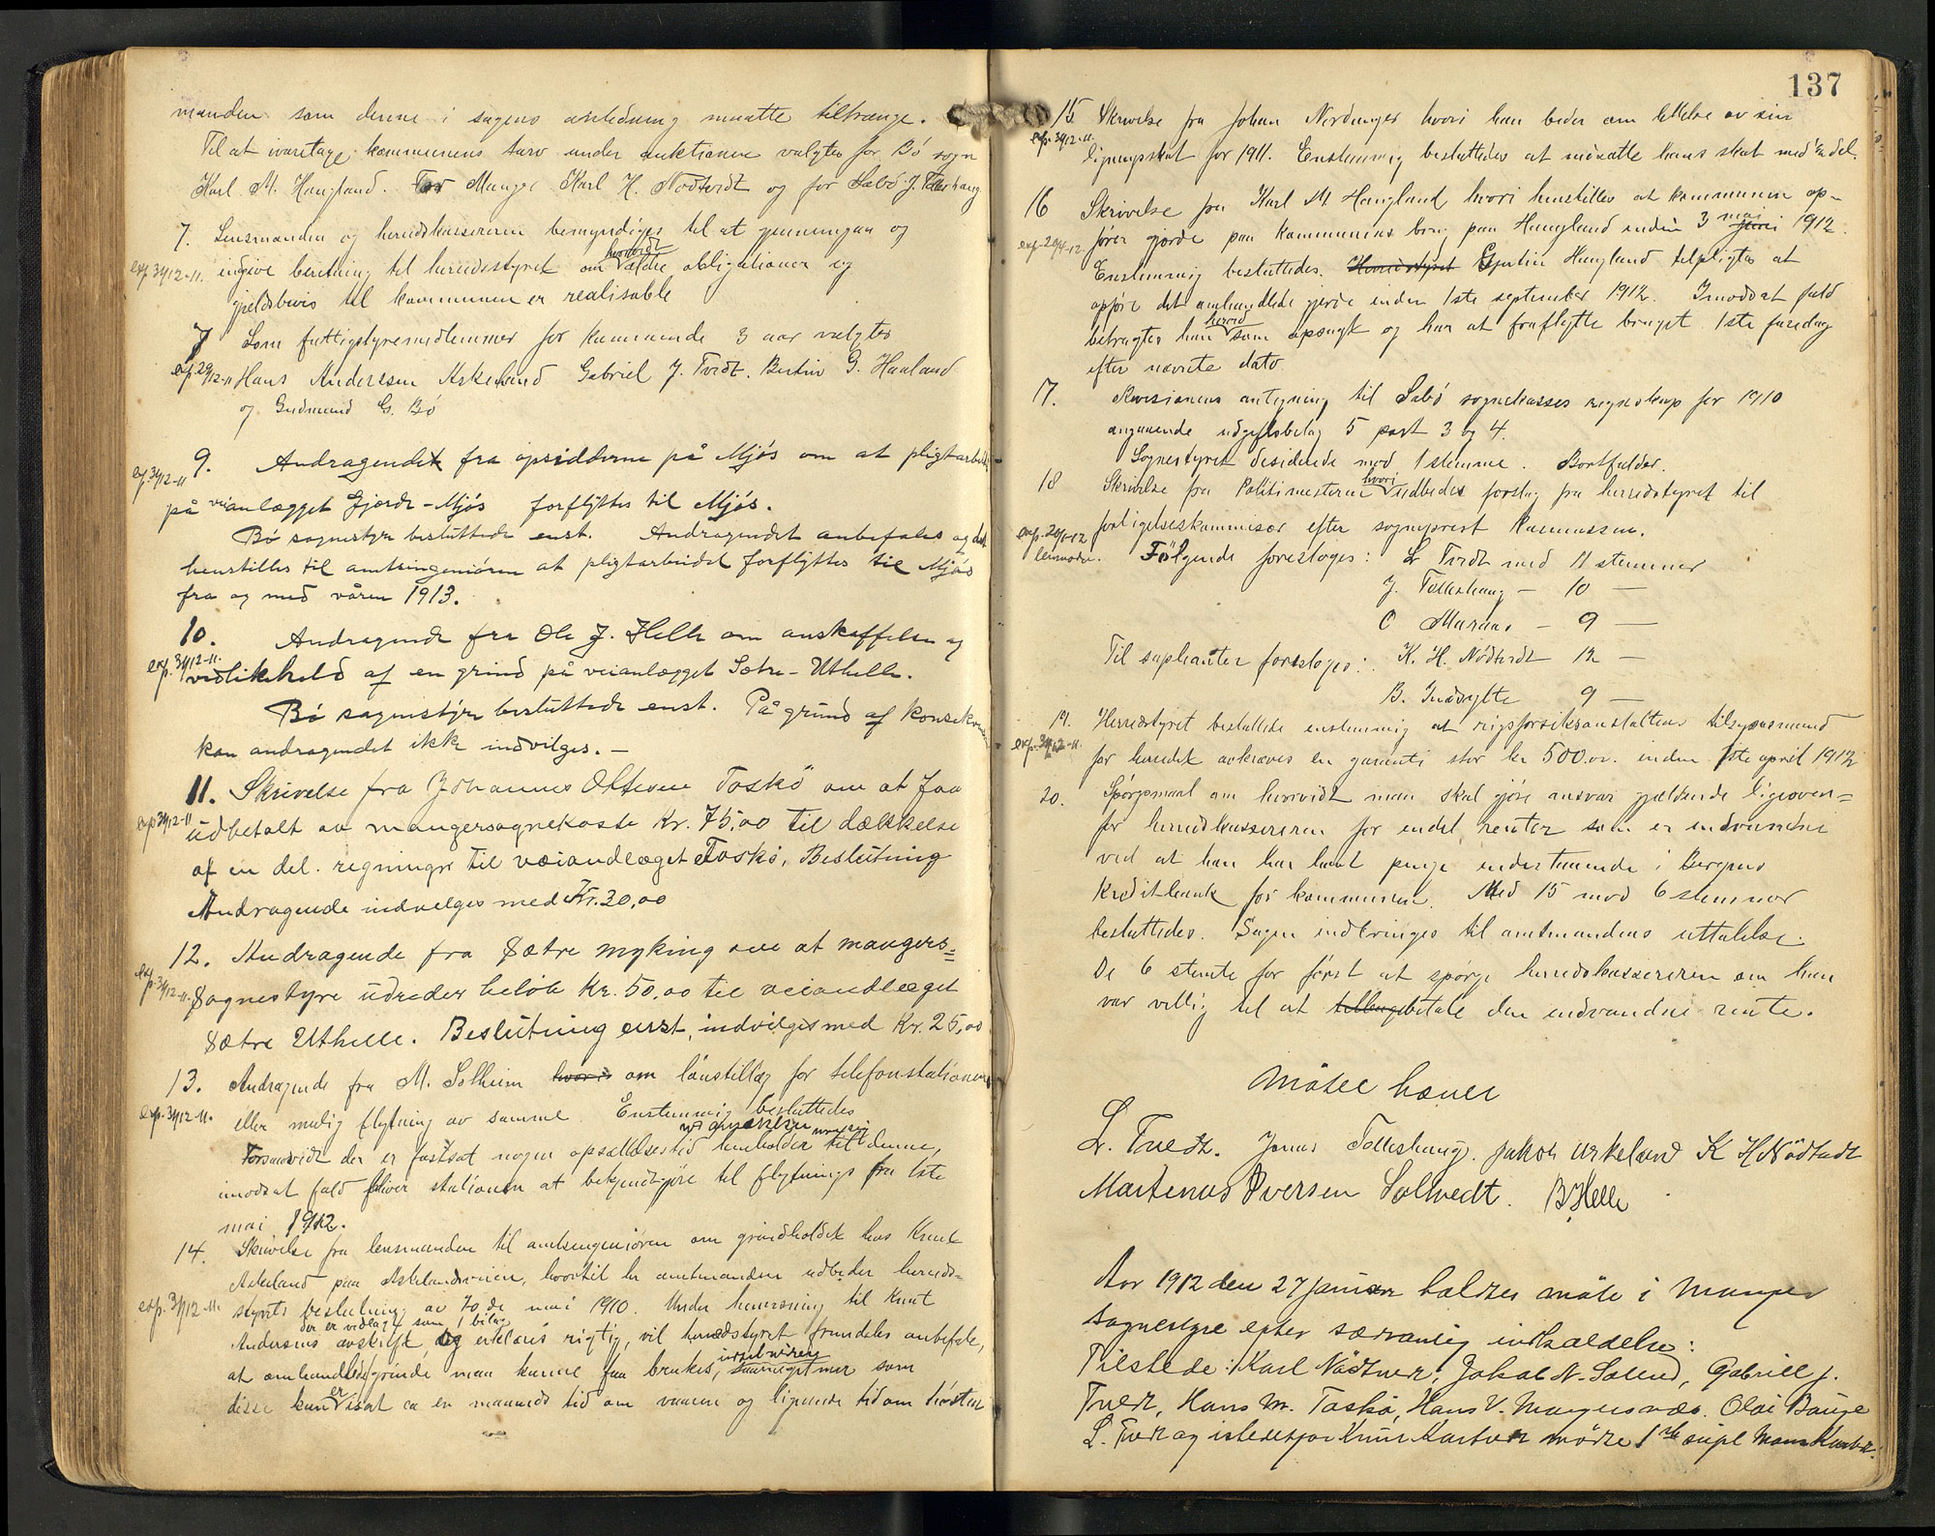 manden som denne i sagens anledning maatte tiltrænge.
Til at ivaretage kommunens tarv under auktionen valgtes for Bö sogn
Karl M. Haugland. For Manger Karl H. Nödtvedt og for Sæbö J. Tolleshaug
7. Lensmanden og herredskassereren bemyndiges til at gjennemgaa og
exp. 30/12-11. indgive beretning til herredsstyret om hvorvidt ældre obligationer og
gjeldsbevis til kommunen er realisable
Som fattigstyremedlemmer for kommende 3 aar valgtes
exp. 29/12-11 Hans Anderssen Askeland Gabriel J. Tvedt. Bertin G. Haaland
og Gudmund G. Bö
exp. 30/12-11 9. Andragendet fra opsidderne på Mjös om at pligtarbeidet
på veianlægget Gjerde-Mjös forflyttes til Mjös.
Bö sognestyre besluttede enst. Andragendet anbefales og det
henstilles til amtsingeniören at pligtarbeidet forflyttes til Mjös
fra og med våren 1913.
10. Andragende fra Ole J. Helle om anskaffelse og
exp. 30/12-11. vedlikehold af en grind på veianlægget Sætre-Uthelle.
Bö sognestyre besluttede enst. På grund af konsekvensen
kan andragendet ikke indvilges. —
11. Skrivelse fra Johannes Oltesen Toskö om at faa
exp 30/12-11 udbetalt av mangersognekasse Kr. 75,00 til dækkelse
af en del. regninger til væianlæget Toskö, Beslutning
Andragende indvelges med Kr. 30,00
12. Andragende fra Sætre myking om at mangers=
exp. 30/12-11. Sognestyre udreder belöb Kr. 50,00 til veiandlæget
Sætre Uthelle. Beslutning enst, indvilges med Kr. 25,00
13. Andragende fra M. Solheim hvori om lönstillæg for telefonstationen
exp. 30/12-11. eller mulig flytning av samme Enstemmig besluttedes
Forsaavidt der er fastsat nogen opsættelsestid henholder til denne,
imodsat fald bliver stationen at bekjendtgjöre til flytnings fra 1ste
mai 1912.
14. Skrivelse fra lensmanden til amtsingeniören om grindholdet hos Knut
Askeland paa Askelandsveien, hvortil hr amtmanden udbeder herreds=
exp. 30/12-11. styrets beslutning av 70 de mai 1910. Under henvisning til Knut
der er vedlagt som 1 bilag
Andersens avskrift, og erklæres rigtig, vil herredsstyret fremdeles anbefale,
at omhandlede grinde maa kunne faa brukes, som
disse kun er isat ca en maaneds tid om vaaren og lignende tid om hösten
137
15 Skrivelse fra Johan Nordanger hvori han beder om lettelse av sin
exp. 30/12-11. ligningsskat for 1911. Enstemmig besluttedes at nedsætte hans skat med ½ del.
16 Skrivelse fra Karl M. Haugland hvori henstilles at kommunen op-
exp. 20/1-12 förer gjerde paa kommunens brug paa Haugland inden 3 mai 1912.
Enstemmig besluttedes. Herredsstyret Bertin Haugland tilpligtes at
opföre det omhandlede gjerde inden 1ste september 1912. Imodsat fald
betragtes han herved som opsagt og har at fraflytte bruget 1ste faredag
efter nævnte dato
17. Revisionens antegning til Sæbö sognekasses regnskap for 1910
angaaende udgiftsbilag 5 post 3 og 4.
Sognestyret desiderede med 1 stemme. Bortfalder.
18 Skrivelse fra Politimesteren hvori udbedes forslag fra herredsstyret til
exp. 20/1-12 forligelseskommisær efter sogneprest Rasmussen.
Fölgende foresloges: L Tvedt med 11 stemmer
J. Tolleshaug — 10 —
O Marøas — 9 —
Til suplianter foresloges: K. H. Nödtvedt 12 —
B. Indsylte 9 —
19. Herredstyret besluttede enstemmig at rigsforsikringsanstaltens tilsynsmand
exp. 30/12-11. for herredet avkræves en garanti stor kr 500.00. inden 1ste april 1912
20. Spörgsmaal om hvorvidt man skal gjöre ansvar gjældende ligeoven=
for herredskassereren for endel renter som er indvundne
ved at han har havt penge indestaaende i Bergens
Kreditbank for kommunen. Med 15 mod 6 stemmer
besluttedes. Sagen indbringes til amtmandens uttalelse.
De 6 stemte for först at spörge herredskassereren om han
var villig til at tilbagebetale den indvundne rente.
Mötet hævet
L. Tvedt. Jonas Tolleshaug. Jakob Askeland K H Nödtvedt
Martenus Iversen Soltvedt. B. Helle
Aar 1912 den 27 januar holdtes möte i Manger
Sognestyre efter sædvanlig indkaldelse:
Tilstede: Karl Nödtvedt, Jakob N. Solend, Gabriell J.
Tvedt, Hans M. Toskö, Hans V. Mangersnæs. Olai Bauge
L. Tvedt og istedetfor Knut Kartvedt mödte 1ste supl Mons Kvamme.